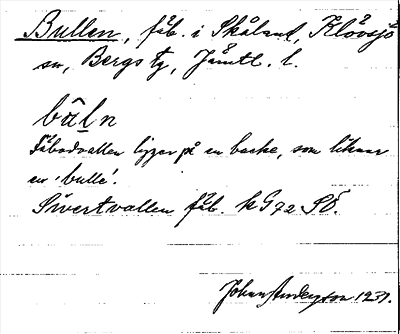 Bullen, fäb. i Skålant, Klövsjö
sn, Bergs tg, Jämtl. l.
bâl̲n
Fäbodvallen ligger på en backe, som liknar
en 'bulle'.
Sivertvallen fäb. k G 72 SÖ.
Johan Anderson 1931.